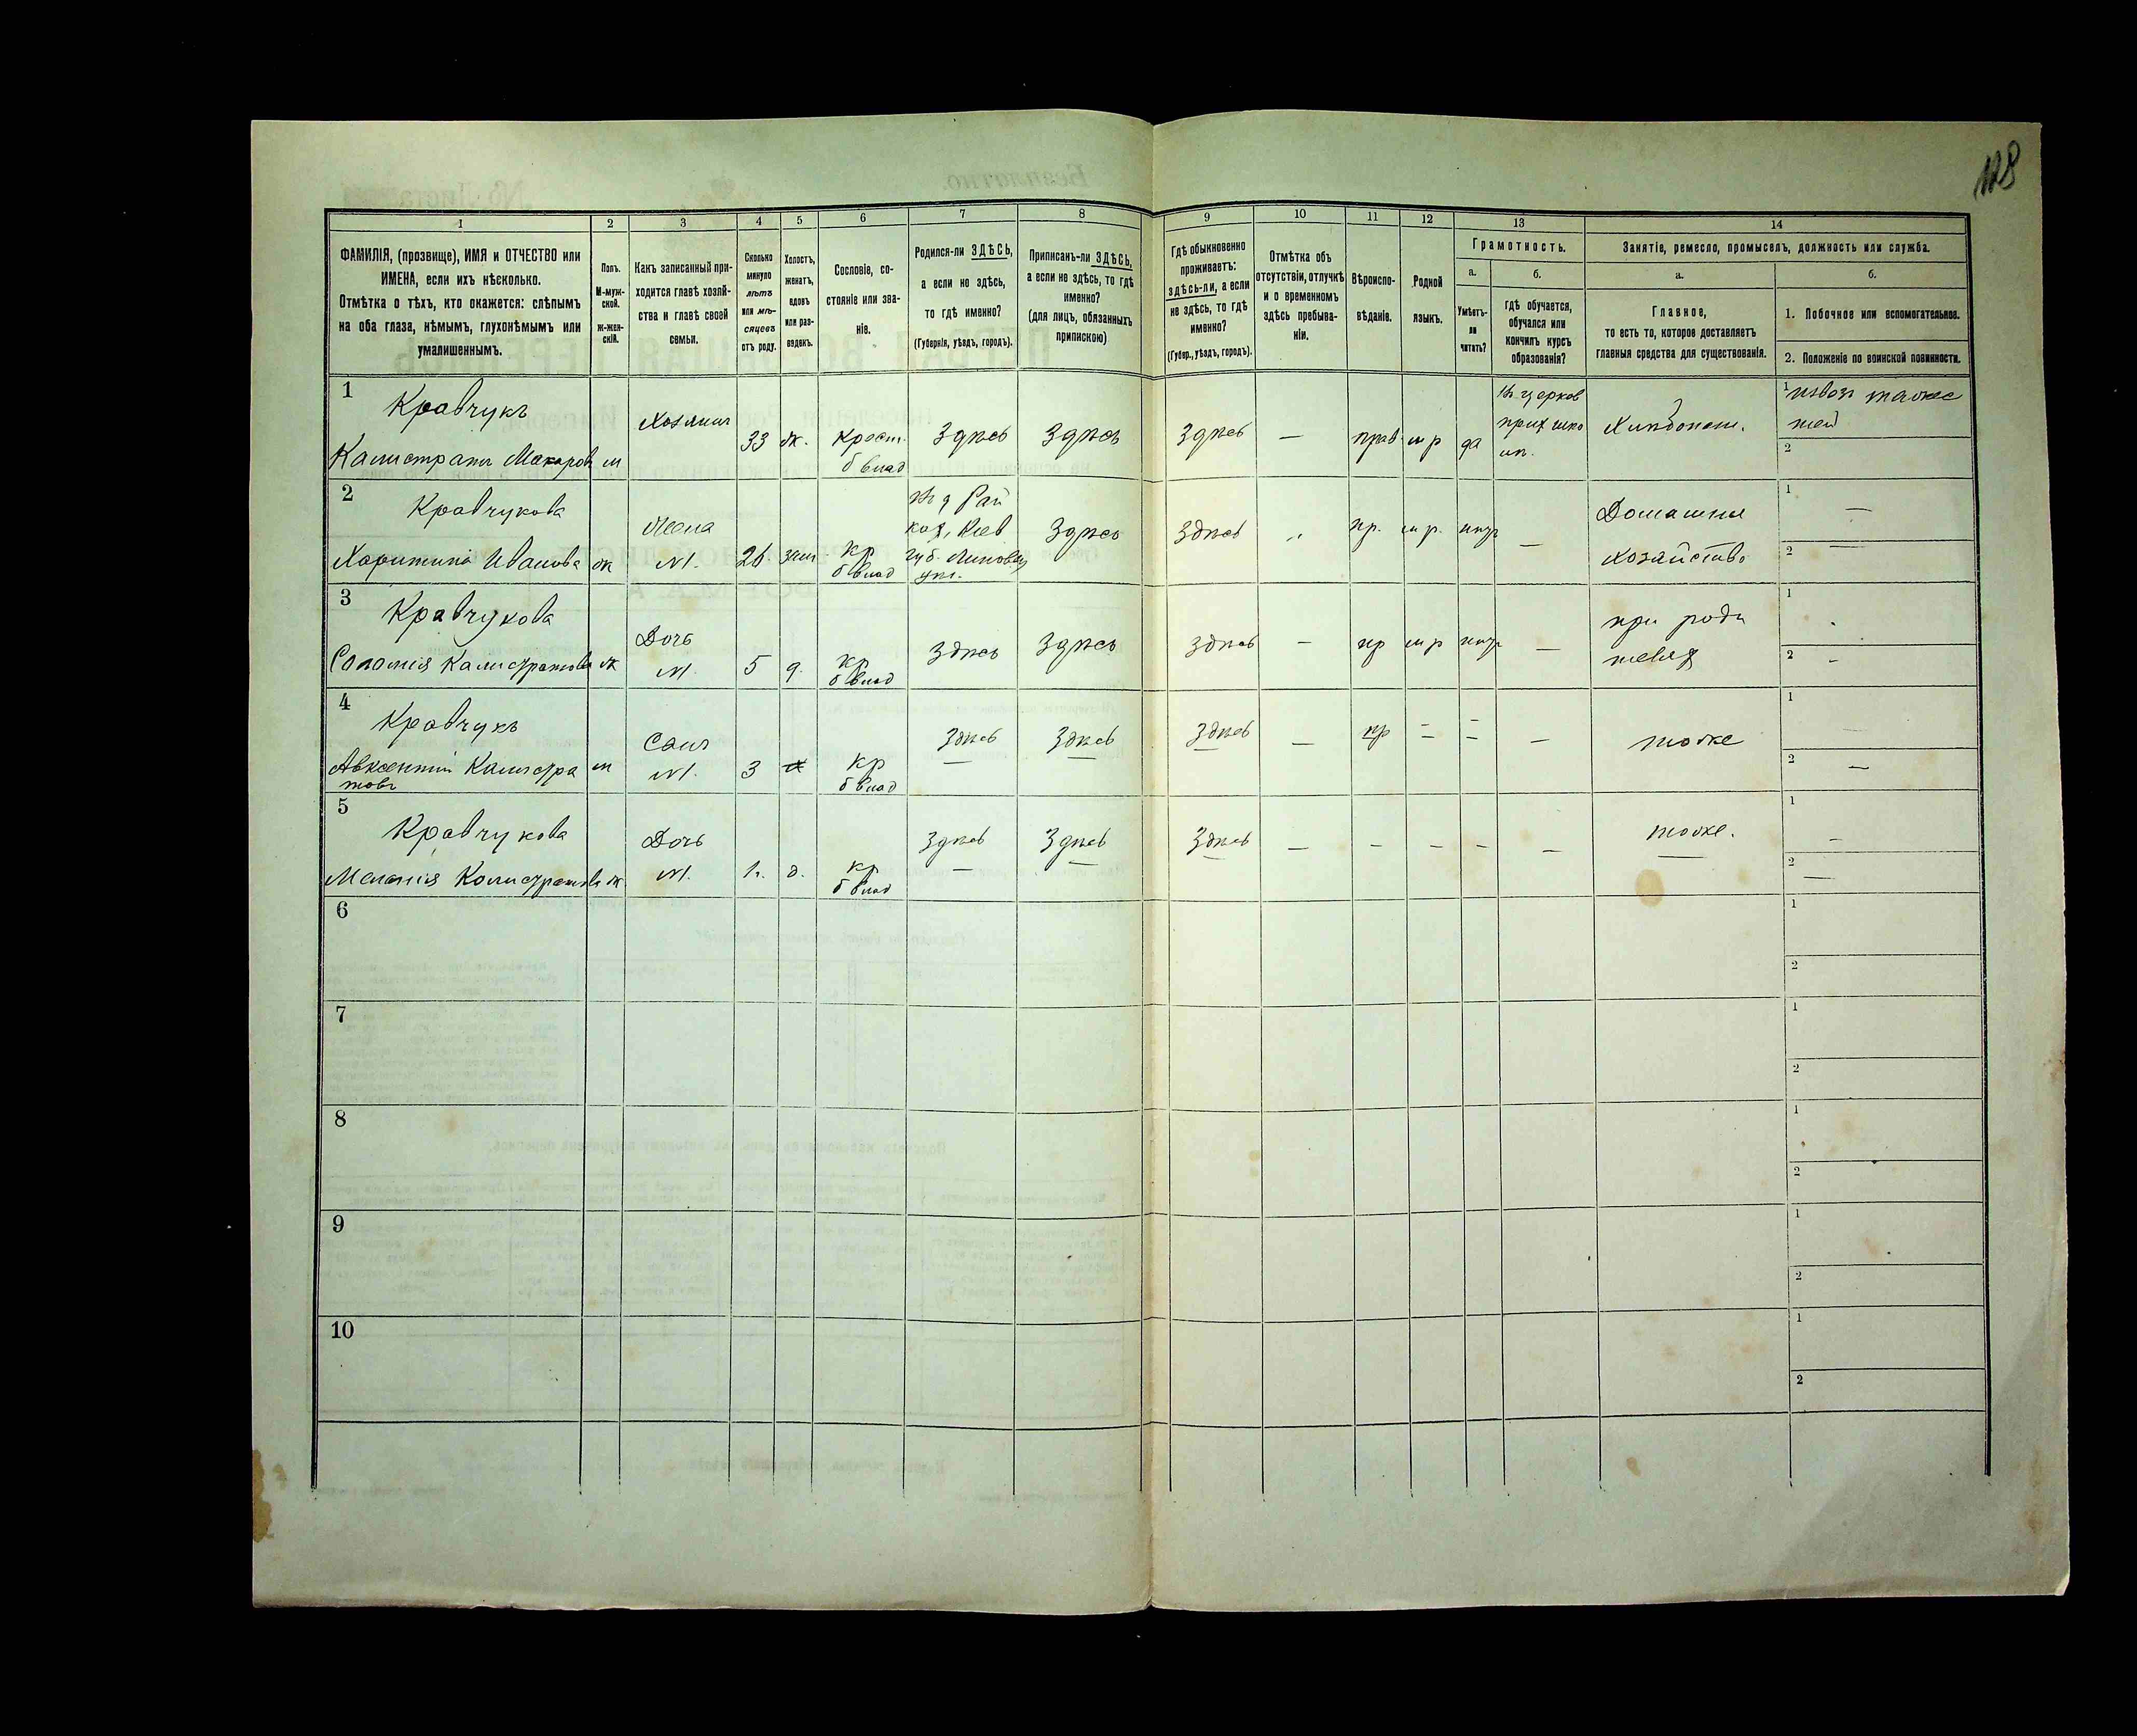 128
1
2
3
4
5
6
7
8
9
10
11
12
13
14
ФАМИЛІЯ, (прозвище), ИМЯ и ОТЧЕСТВО или
ИМЕНА, если ихъ нѣсколько.
Отмѣтка о тѣхъ, кто окажется: слѣпымъ
на оба глаза, нѣмымъ, глухонѣмымъ или
умалишеннымъ.
Полъ.
М-муж-
ской.
ж-жен-
скій.
Какъ записанный при-
ходится главѣ хозяй-
ства и главѣ своей
семьи.
Сколько
минуло
лѣтъ
или мѣ-
сяцевъ
отъ роду.
Холостъ,
женатъ,
вдовъ
или раз-
веденъ.
Сословіе, со-
стояніе или зва-
ніе.
Родился-ли ЗДѢСЬ,
а если не здѣсь,
то гдѣ именно?
(Губернія, уѣздъ, городъ).
Приписанъ-ли ЗДѢСЬ,
а если не здѣсь, то гдѣ
именно?
(для лицъ, обязанныхъ
припискою)
Гдѣ обыкновенно
проживаетъ:
здѣсь-ли, а если
не здѣсь, то гдѣ
именно?
(Губер., уѣздъ, городъ).
Отмѣтка объ
отсутствіи, отлучкѣ
и о временномъ
здѣсь пребыва-
ніи.
Вѣроиспо-
вѣданіе.
Родной
языкъ.
Грамотность.
а.
Умѣетъ-
ли
читать?
б.
Гдѣ обучается,
обучался или
кончилъ курсъ
образованія?
Занятіе, ремесло, промыселъ, должность или служба.
а.
Главное,
то есть то, которое доставляетъ
главныя средства для существованія.
б.
1. Побочное или вспомогательное.
2. Положеніе по воинской повинности.
1
Кравчукъ
Калистратъ Макаровъ
м
Хозяинъ
33
ж.
Крест.
б влад
Здѣсь
Здѣсь
Здѣсь
—
прав
м р
да
въ церков
прих шко
Хлѣбопаш.
1
2
2
Кравчукова
Харитина Иванова
ж
Жена
№1.
26.
зам
кр
б влад
Кіев
губ. Липовец
Здѣсь
Здѣсь
пр.
м р.
—
Домашнее
хозяйство
1
—
2
3
Кравчукова
Соломія Калистратова
ж
Дочь
№1.
5
д.
кр
б влад
Здѣсь
Здѣсь
здѣсь
—
пр
м р
—
при роди
теляхъ
1
2
-
4
Кравчукъ
Авксентій Калистра
товъ
м
Сынъ
№1.
3
кр
б влад
Здѣсь
Здѣсь
Здѣсь
—
пр
—
тоже
1
2
—
5
Кравчукова
Меланія Калистратова
ж
Дочь
№1.
1 г.
д.
кр
б влад
Здѣсь
Здѣсь
Здѣсь
—
-
-
-
—
тоже.
1
—
2
—
6
1
2
7
1
2
8
1
2
9
1
2
10
1
2